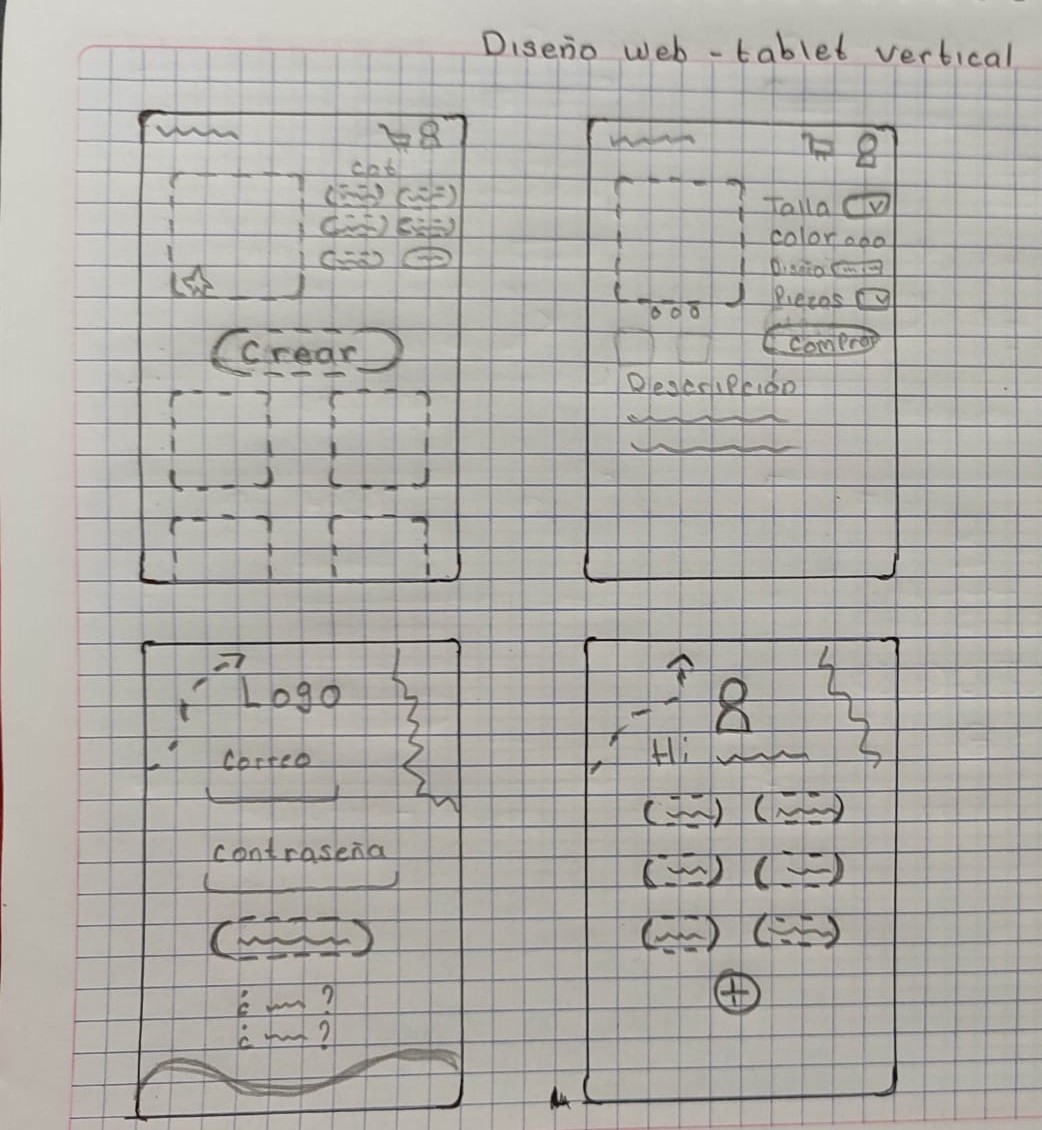 Diseño web - tablet vertical
cat
Crear
Talla
Color
Diseño
Piezas
Comprar
Descripción
Logo
Correo
contraseña
¿ ?
¿ ?
Hi